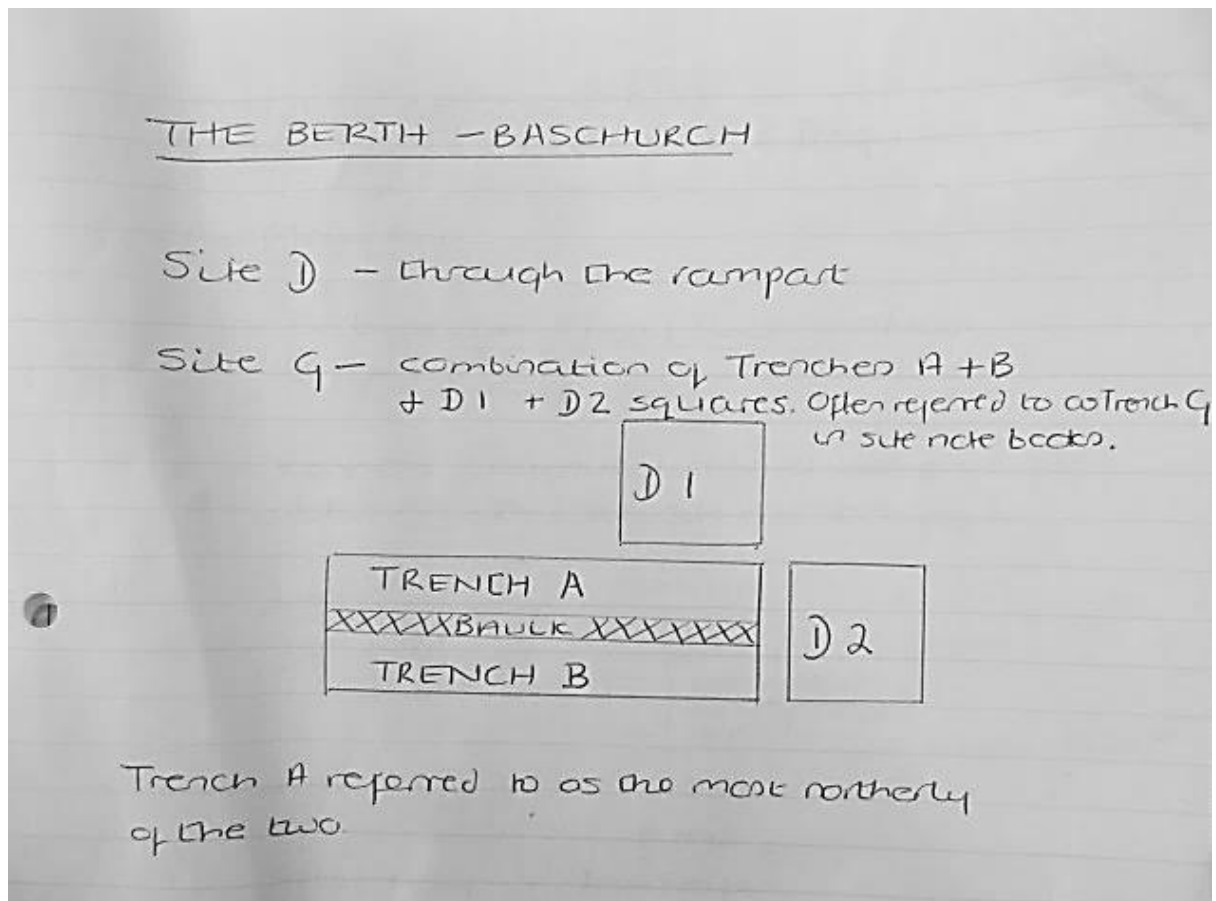 THE BERTH - BASCHURCH
Site D - through the rampart
Site G - combination of Trenches A + B
+ D1 + D2 squares. Often referred to as Trench G
in site note books.
D 1
TRENCH A
XXXXXBAULKXXXXXXX
TRENCH B
D 2
Trench A referred to as the most northerly
of the two